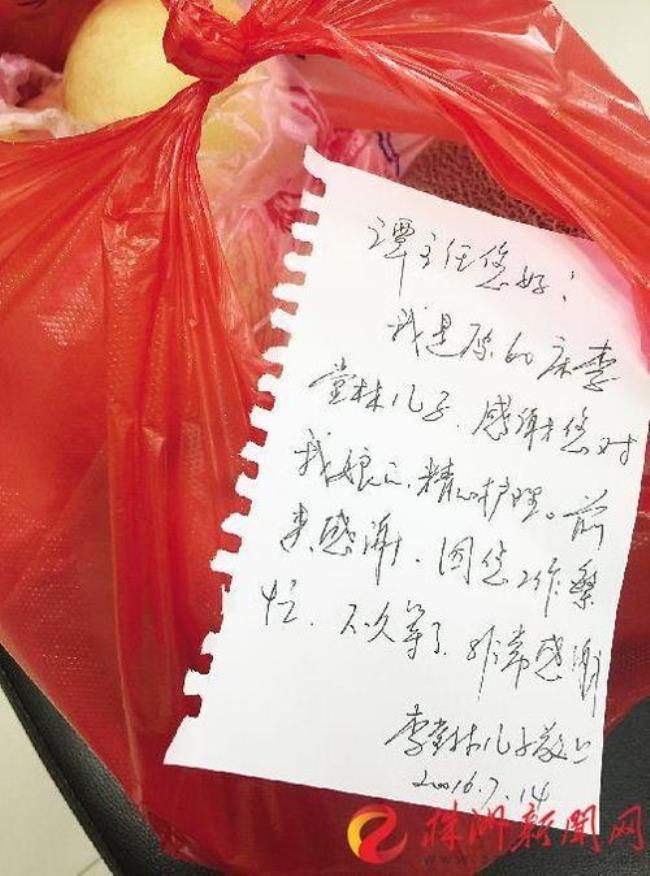 谭主任您好：
我是原60床李
堂林儿子.感谢您对
我娘的精心护理。前
来感谢.因您工作繁
忙.不久等了.非常感谢
李堂林儿子敬上
2016.7.14
株洲新闻网